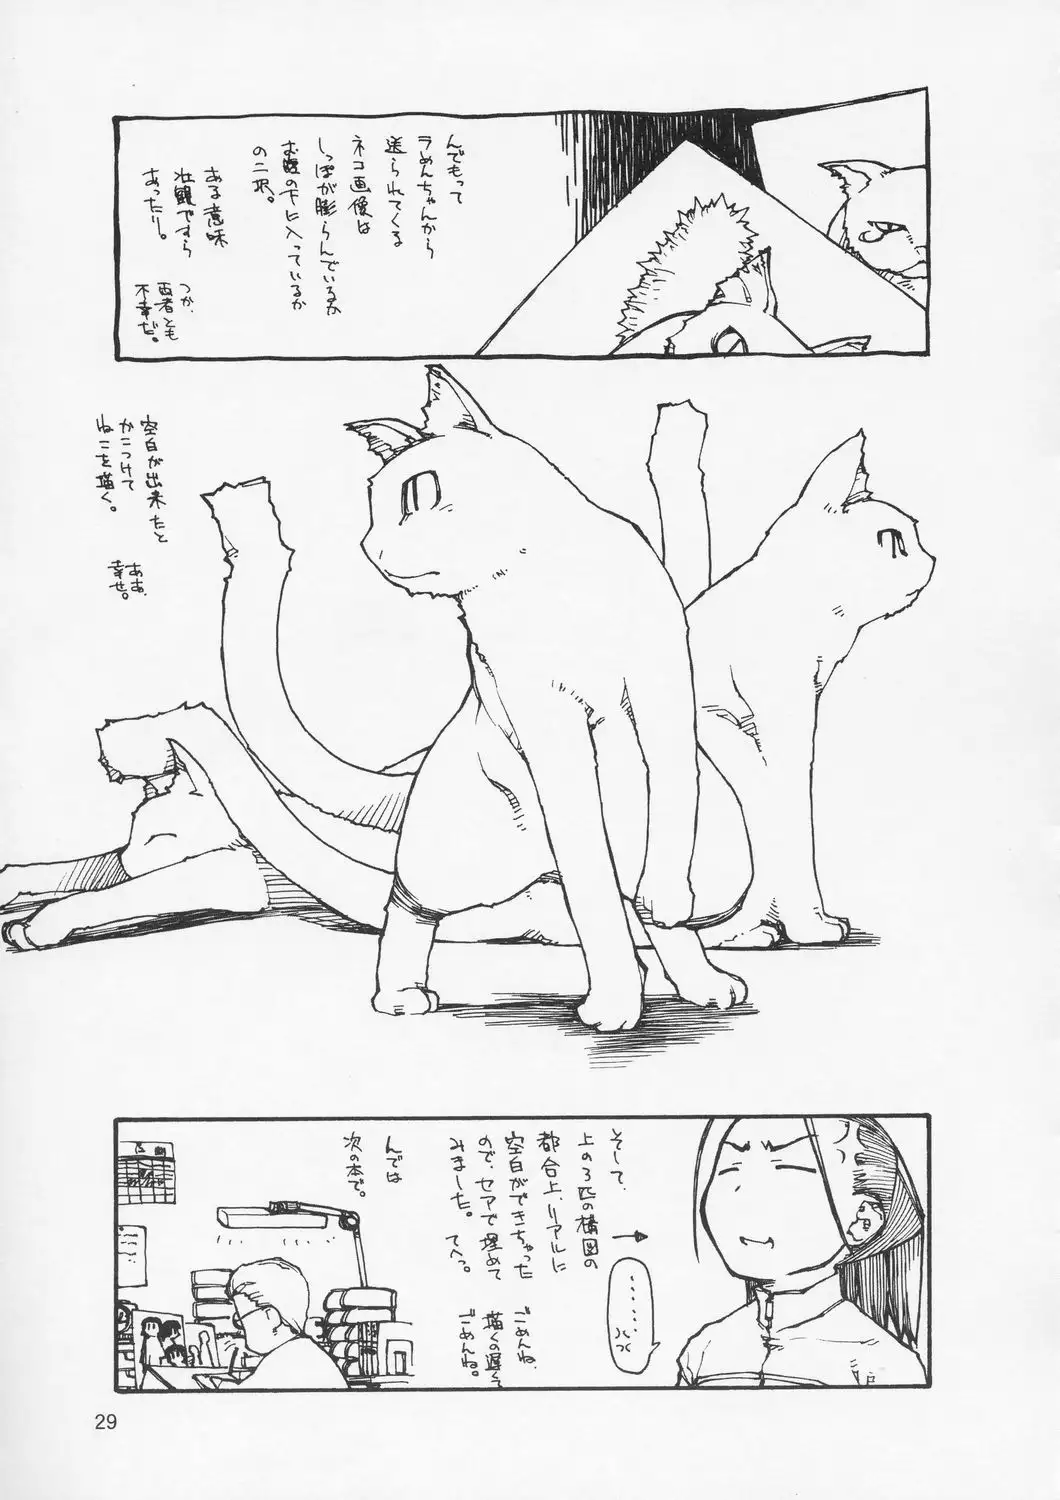 んでもって
ラめんちゃんから
送られてくる
ネコ画像は
しっぽが膨らんでいるか
お腹の下に入っているか
の二択。
ある意味
壮観ですら
あったり。
つか、
両者とも
不幸だ。
空白が出来たと
かこつけて
ねこを描く。
ああ、
幸せ。
そして、
上の3匹の構図の
都合上、リアルに
空白ができちゃった
ので、セアで埋めて
みました。
てへっ。
ごめんね、
描くの遅くて
ごめんね。
んでは
次の本で。
29